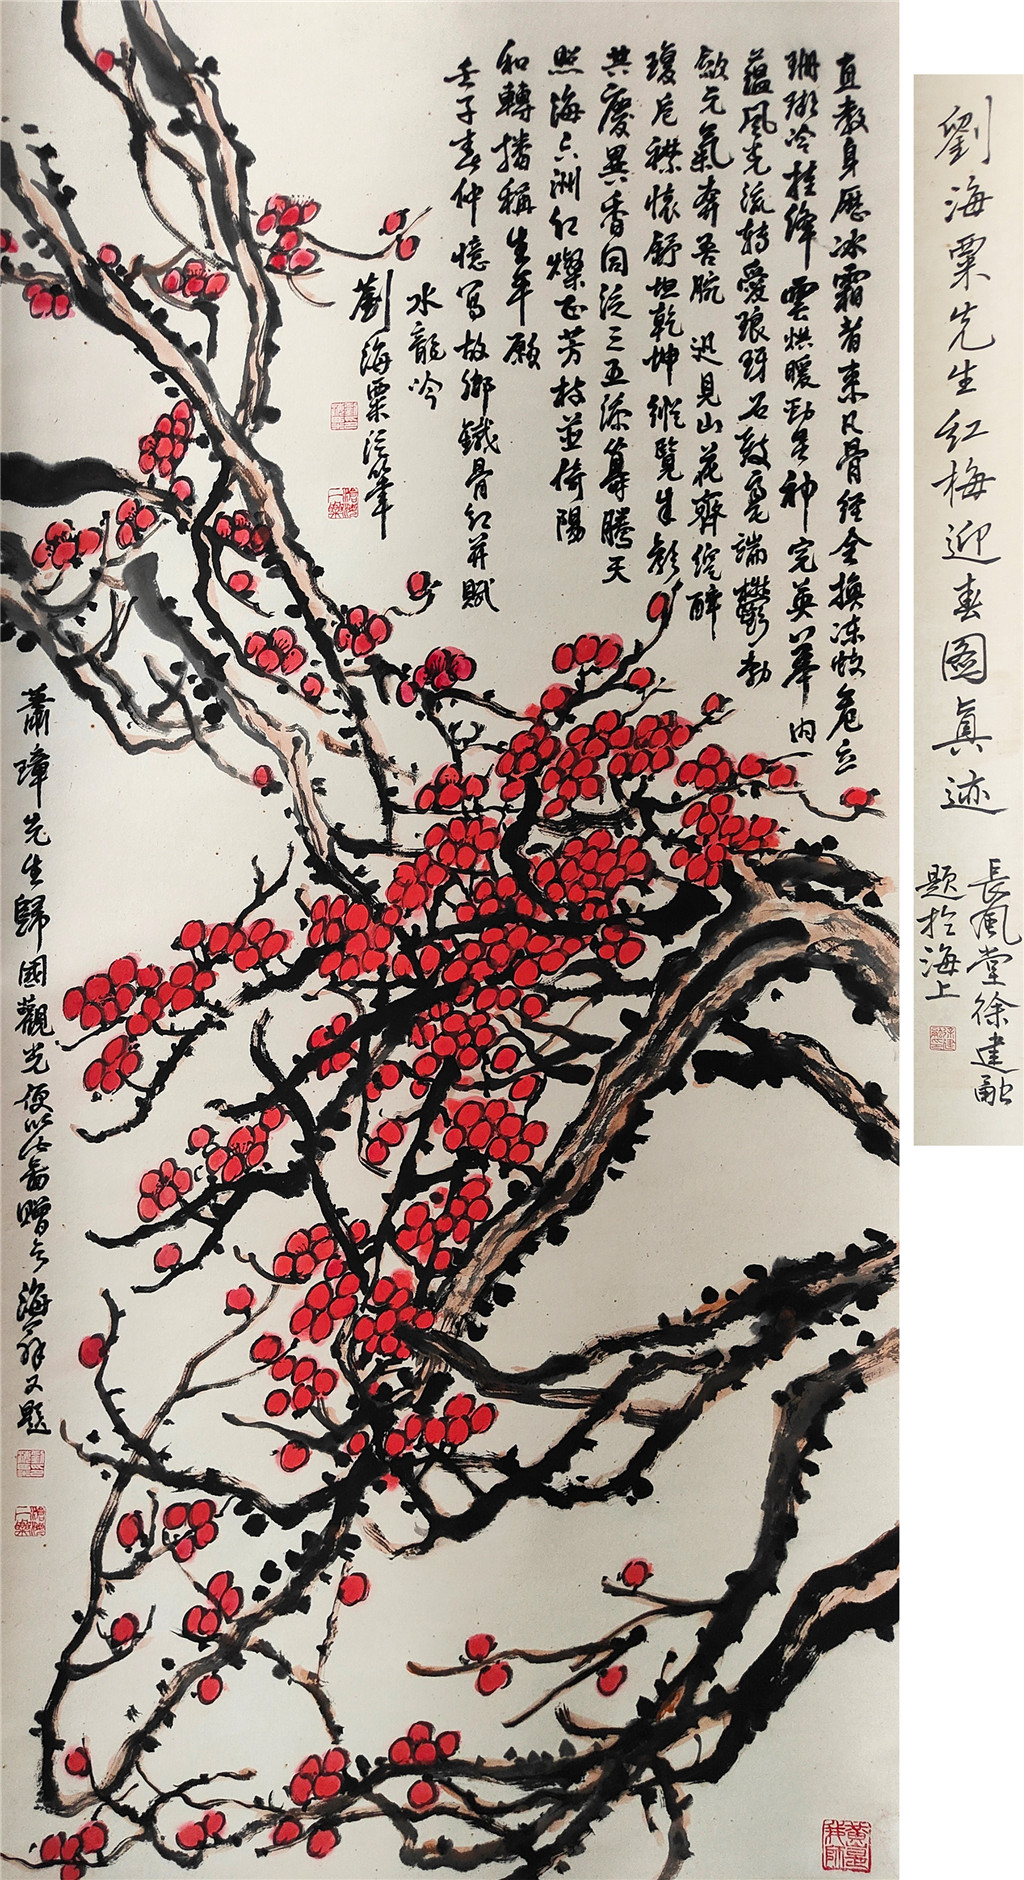 直教身歷冰霜者來凡骨經全換凍蛟危立
珊瑚冷挂絳雲烘暖勁美神完英華內
蘊風光流轉愛琅玕石皴意端鬱勃
斂元氣奔吾腕迅見山花齊綻醉
瓊卮襟懷舒坦乾坤縱覽生彩
共慶異香同泛三五添籌騰天
照海六洲紅燦正芳枝並倚陽
和轉播稱生年願
壬子春仲憶寫故鄉鐵骨紅并賦
水龍吟
劉海粟泛筆
蕭璋先生歸國觀光便以此圖贈之海粟又題
黃岳我師
劉海粟先生紅梅迎春圖真迹
長風堂徐建融
題於海上